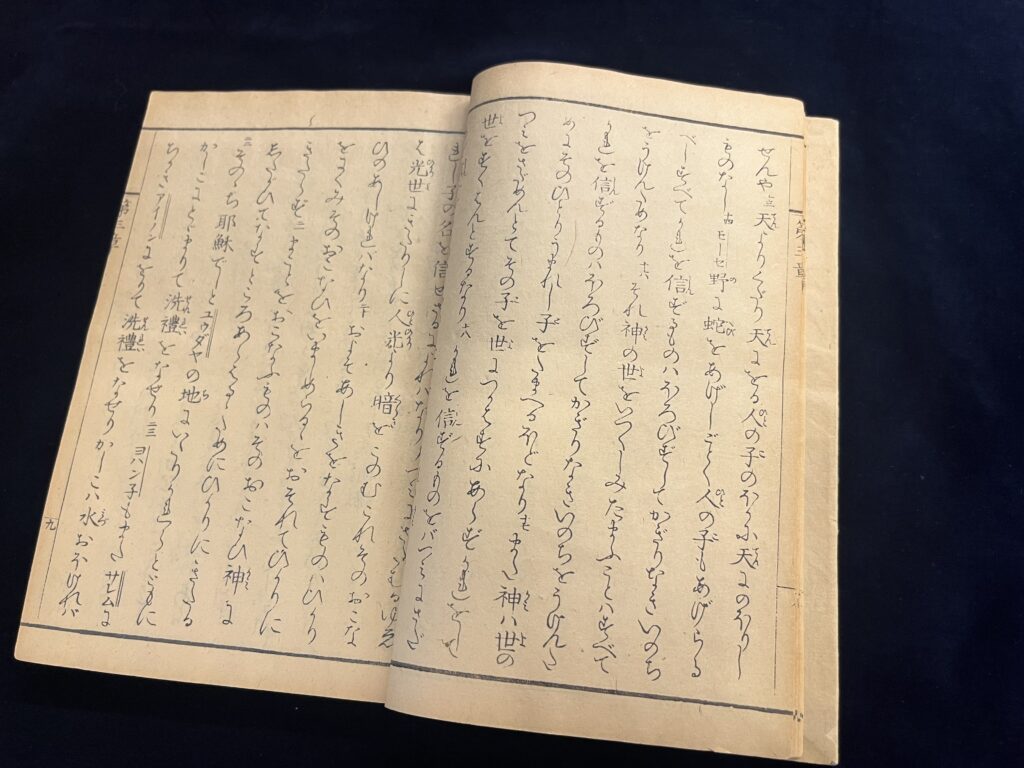 せんや 十三 天よりくだり天にをる人の子のほかに天にのぼりし
ものなし 十四 モーセ野に蛇をあげしごとく人の子もあげらる
べしすべてかれを信ずるものハほろびずしてかぎりなきいのち
をうけんためなり 十六 それ神の世をいつくしみたまふことハすべて
かれを信ずるものハほろびずしてかぎりなきいのちをうけんた
めにそのひとりうまれし子をたまへるほどなり 十七 また神ハ世の
つみをさだめんとてその子を世につかはすにあらずかれをして
世をすくはんとするなり 十八 かれを信ずるものをバつみにさだ
第三章
れし子の名を信ぜざるによれバなり さだむるゆゑ
は光世にきたりしに人光より暗をこのむこれそのおこな
ひのあしけれバなり 二十 おほよそあしきをなすものハひかり
をにくみそのおこなひをいましめらるゝをおそれてひかりに
きたらず 二一 まことをおこなふものハそのおこなひ神に
したがひてなすところあらはるゝためにひかりにきたる
二二 そのゝち耶穌でしとユウダヤの地にいたりかれらとともに
かしこにとゞまりて洗禮をなせり 二三 ヨハン子もまたサレムに
ちかきアイノンにをりて洗禮をなせりかしこハ水おほけれバ
第三章
九